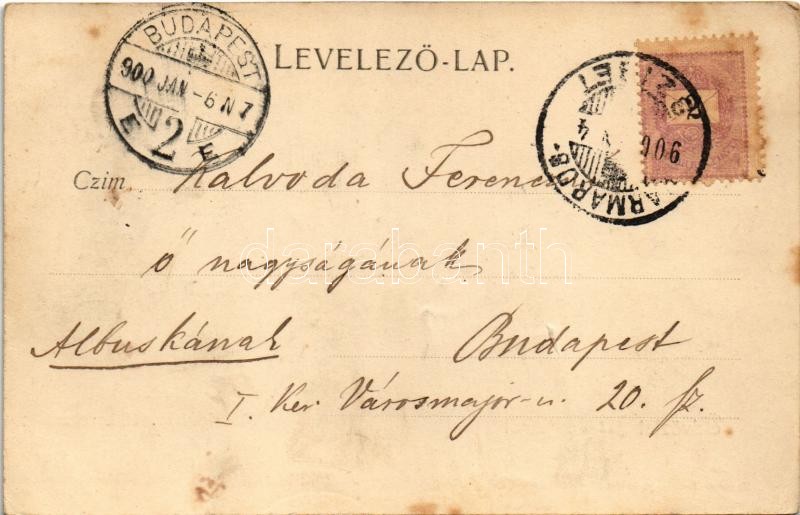 BUDAPEST
900 JAN -6 N 7
E 2 E
LEVELEZŐ-LAP.
SZIGET
900
4
MÁRMAROS-
Czim Kalvoda Ferenc
ő nagyságának
Albuskának Budapest
I. Ker. Városmajor-u. 20. sz.
darabanth